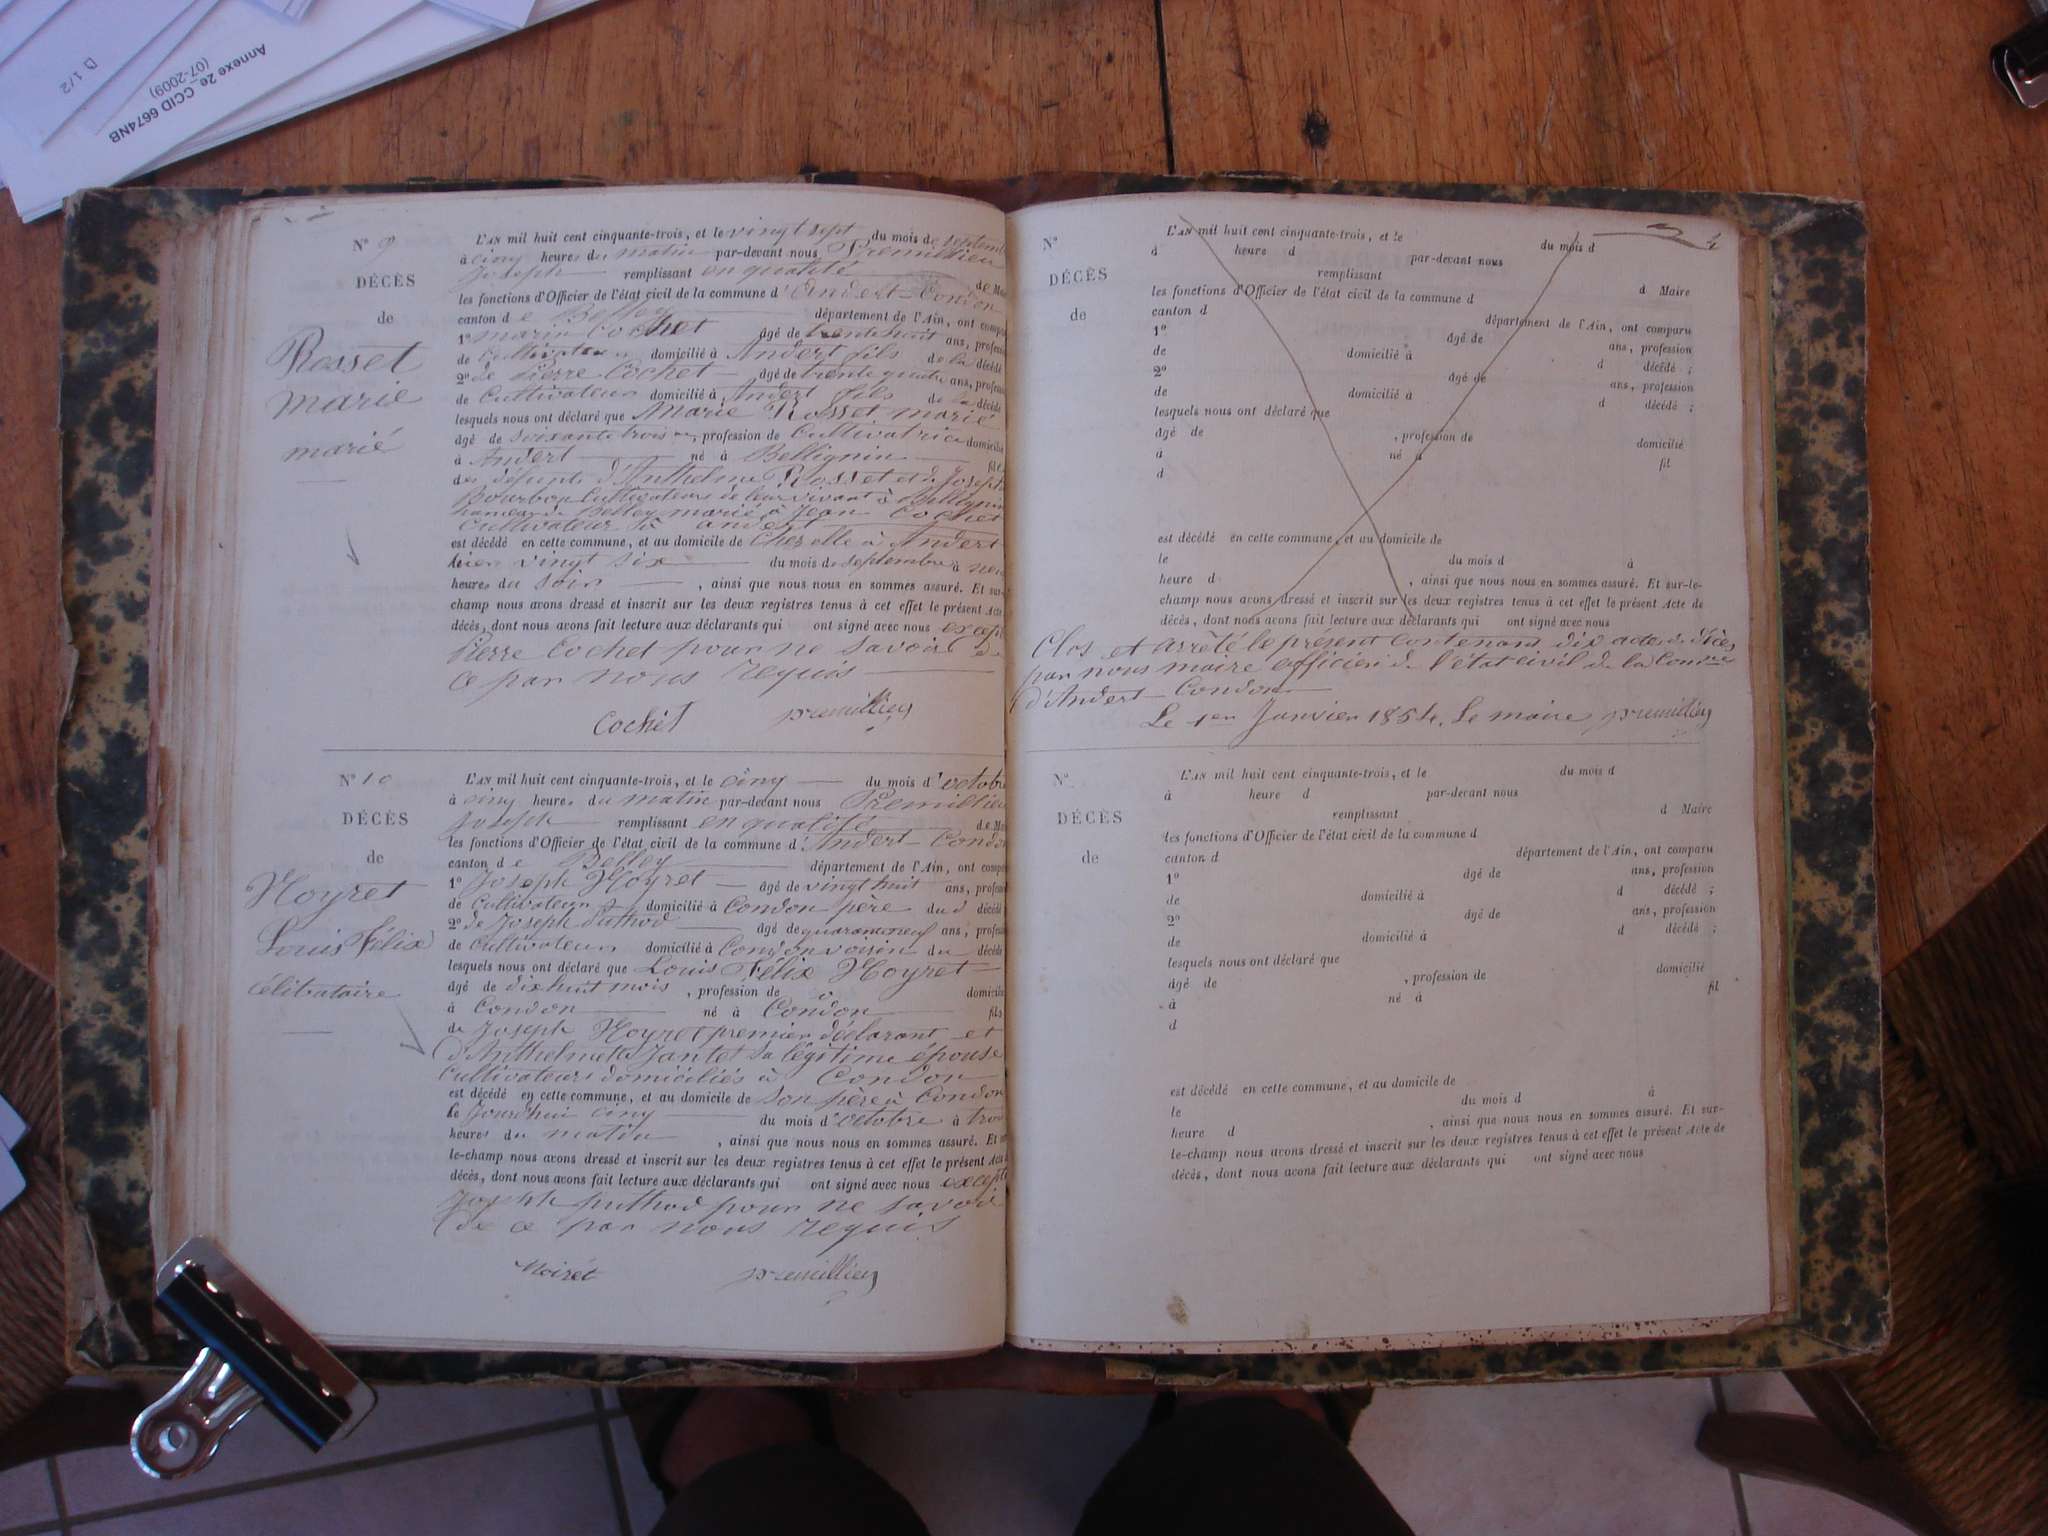 Annexe 2e CCID 6674NB
(07-2009)
D 1/2
N° 9
DÉCÈS
de
Rosset
marie
marié
L'AN mil huit cent cinquante-trois, et le vingt sept du mois de septemb
à cinq heures du matin par-devant nous Premillieu
Joseph remplissant en qualité de Ma
les fonctions d'Officier de l'état civil de la commune d'Andert-Condon
canton de Belley département de l'Ain, ont compa
1° marin Cochet âgé de trente huit ans, profession
de Cultivateur domicilié à Andert fils de la décédé
2° de Pierre Cochet âgé de trente quatre ans, profess
de Cultivateur domicilié à Andert fils de la décédé
lesquels nous ont déclaré que Marie Rosset marié
âgé de soixante trois an, profession de Cultivatrice domicilié
à Andert né à Bellignin fille
des défunts d'Anthelme Rosset et de Joseph
Bourbon Cultivateurs de leur vivant à Bellignin
hameau de Belley marié à Jean Cochet
Cultivateur à andert
est décédé en cette commune, et au domicile de Chez elle à Andert
hier vingt six du mois de septembre à neuf
heures du soir , ainsi que nous nous en sommes assuré. Et sur-
champ nous avons dressé et inscrit sur les deux registres tenus à cet effet le présent Acte
décès, dont nous avons fait lecture aux déclarants qui ont signé avec nous excepté
Pierre Cochet pour ne savoir de
ce par nous requis
Cochet premillieu
N° 10
DÉCÈS
de
Noyret
Louis Félix
célibataire
L'AN mil huit cent cinquante-trois, et le cinq du mois d'octobre
à cinq heures du matin par-devant nous Premillieu
Joseph remplissant en qualité de Ma
les fonctions d'Officier de l'état civil de la commune d'Andert-Condon
canton de Belley département de l'Ain, ont compa
1° Joseph Noyret âgé de vingt huit ans, profess
de Cultivateur domicilié à Condon père du d décédé
2° de Joseph Puthod âgé de quarante neuf ans, profess
de Cultivateur domicilié à Condon voisin du décédé
lesquels nous ont déclaré que Louis Félix Noyret
âgé de dix huit mois , profession de domicilié
à Condon né à Condon fils
de Joseph Noyret premier déclarant et
d'Anthelmette Jantet sa légitime épouse
Cultivateurs domiciliés à Condon
est décédé en cette commune, et au domicile de son père à Condon
le Jourdhui cinq du mois d'octobre à trois
heures du matin , ainsi que nous nous en sommes assuré. Et sur-
le-champ nous avons dressé et inscrit sur les deux registres tenus à cet effet le présent Acte
décès, dont nous avons fait lecture aux déclarants qui ont signé avec nous excepté
Joseph puthod pour ne savoir
de ce par nous requis
Noirét premillieu
N°
DÉCÈS
de
L'AN mil huit cent cinquante-trois, et le du mois d
à heure d par-devant nous
remplissant d Maire
les fonctions d'Officier de l'état civil de la commune d
canton d département de l'Ain, ont comparu
1° âgé de ans, profession
de domicilié à d décédé ;
2° âgé de ans, profession
de domicilié à d décédé ;
lesquels nous ont déclaré que
âgé de , profession de domicilié
à né à fil
d
est décédé en cette commune, et au domicile de
le du mois d à
heure d , ainsi que nous nous en sommes assuré. Et sur-le-
champ nous avons dressé et inscrit sur les deux registres tenus à cet effet le présent Acte de
décès, dont nous avons fait lecture aux déclarants qui ont signé avec nous
Clos et arrêté le présent contenant dix actes de décès
par nous maire officier de l'état civil de la Comne
d'Andert-Condon
Le 1er Janvier 1854. Le maire premillieu
N°
DÉCÈS
de
L'AN mil huit cent cinquante-trois, et le du mois d
à heure d par-devant nous
remplissant d Maire
les fonctions d'Officier de l'état civil de la commune d
canton d département de l'Ain, ont comparu
1° âgé de ans, profession
de domicilié à d décédé ;
2° âgé de ans, profession
de domicilié à d décédé ;
lesquels nous ont déclaré que
âgé de , profession de domicilié
à né à fil
d
est décédé en cette commune, et au domicile de
le du mois d à
heure d , ainsi que nous nous en sommes assuré. Et sur-
le-champ nous avons dressé et inscrit sur les deux registres tenus à cet effet le présent Acte de
décès, dont nous avons fait lecture aux déclarants qui ont signé avec nous